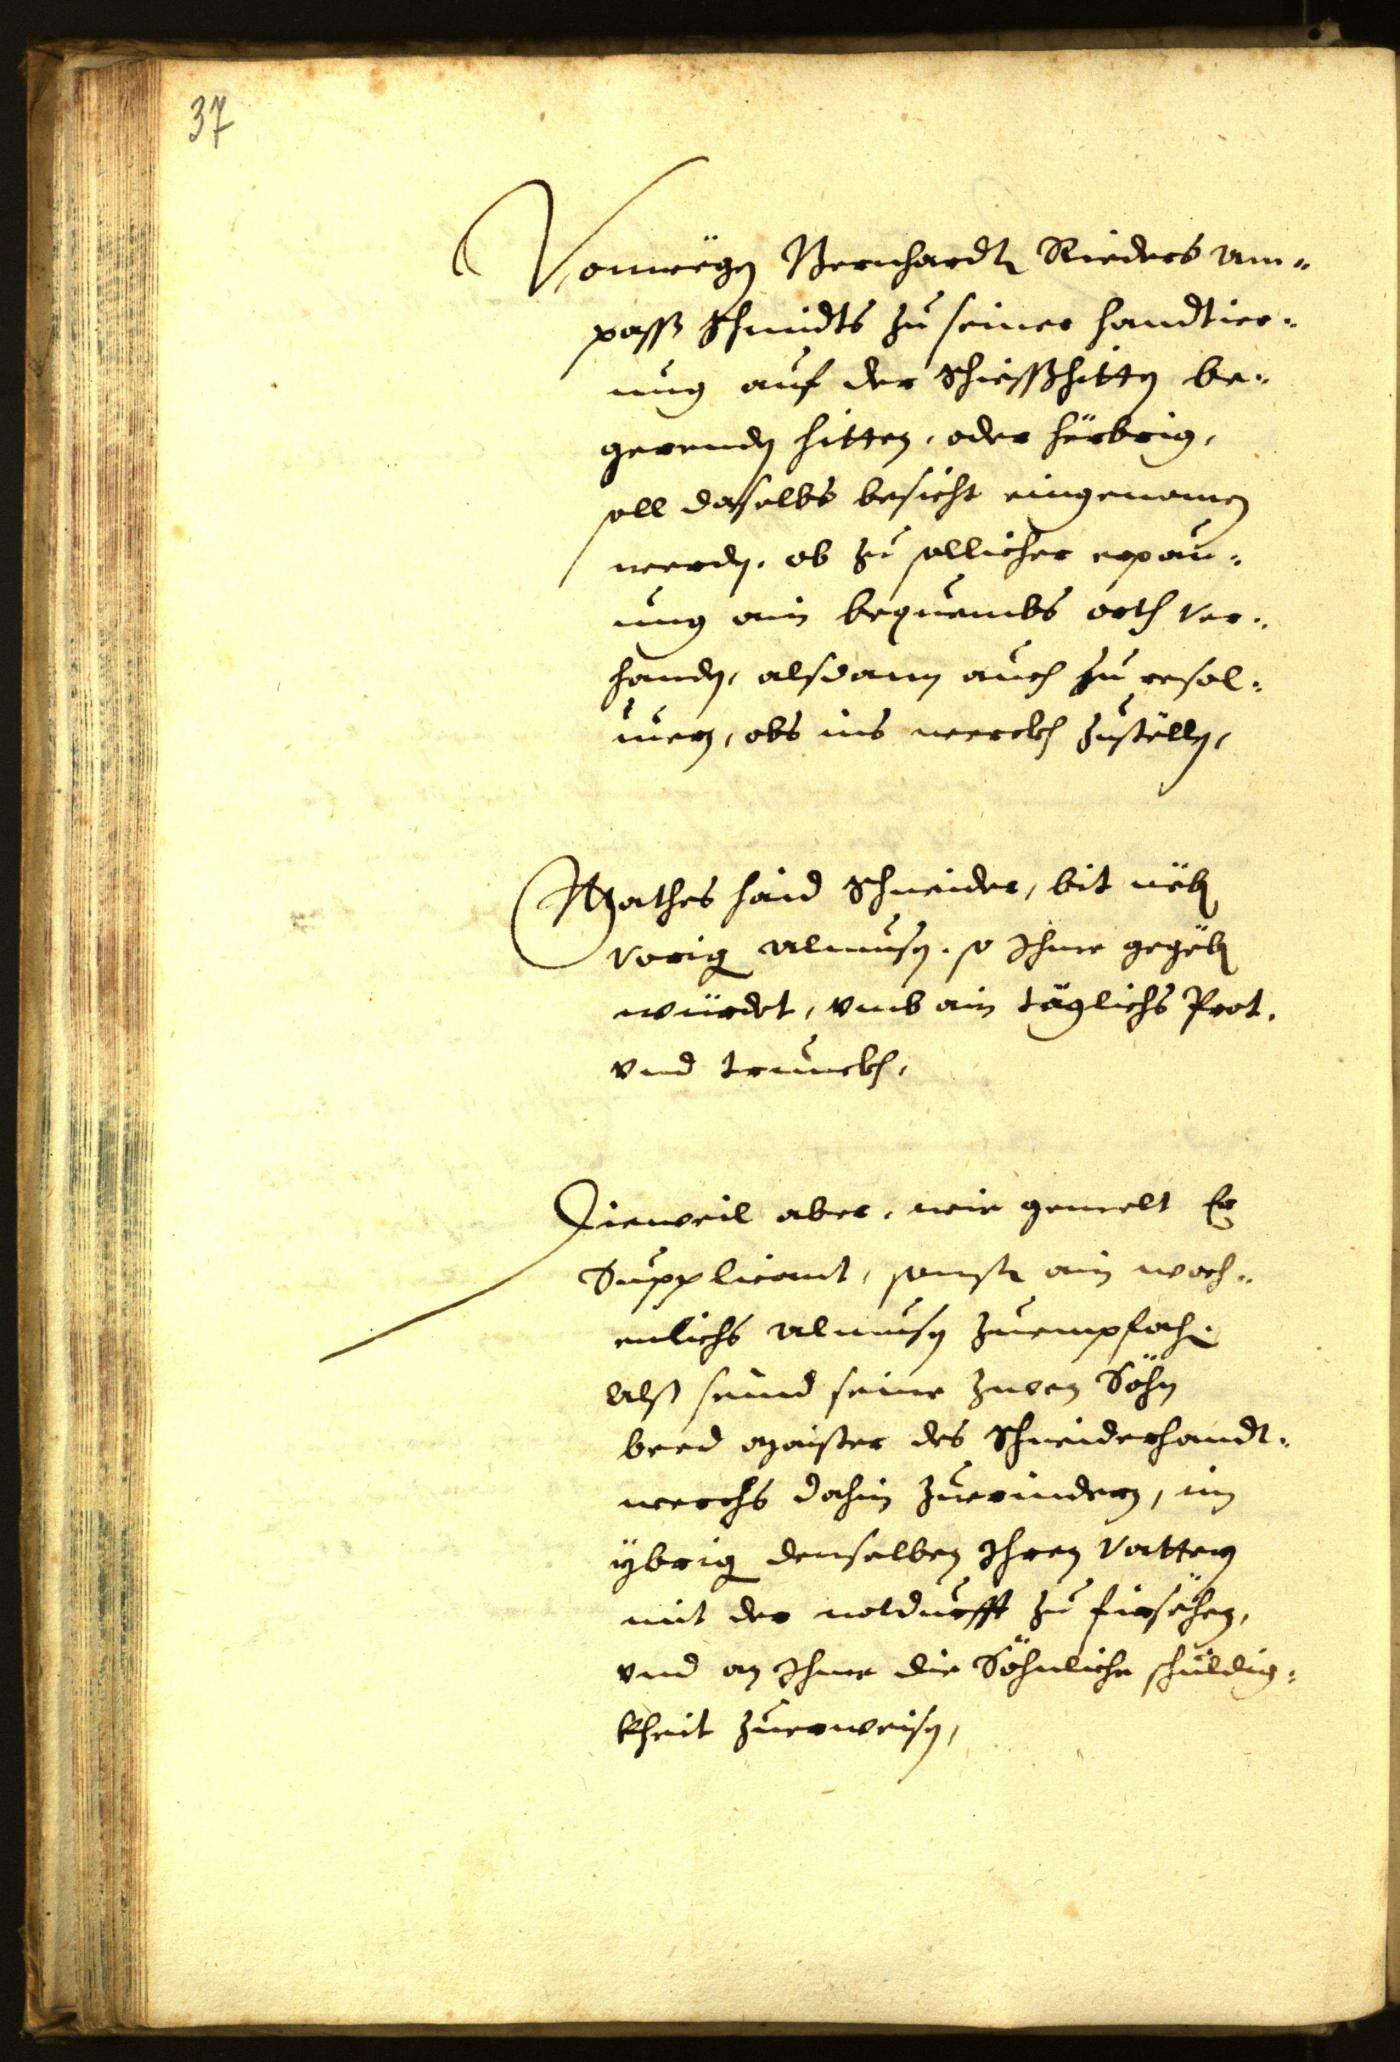 37
Vonwegen Bernhardt Rieders Am-
pass Schmidts zu seiner handtier-
ung auf der Schiesshitten be-
gerenden hitten, oder herbrig,
soll daselbs besicht eingenomen
werden, ob zu sollicher erpau-
ung ain bequembs orth ver-
handen, alsdann auch zu resol-
uiern, obs ins werckh zustellen,
Mathes haid Schneider, bit neben
vorig Almusen, so Ihme gegeben
würdet, vmb ain täglichs Prot,
vnd trunckh,
Dieweil aber, wie gemelt Er
Supplicant, sonst ain woch-
enlichs Almusen zuempfach.
Alss seind seine zwen Söhn
beed maister des Schneiderhandt-
werchs dahin zuerindern, im
ybrig denselben Ihren Vattern
mit der notdurfft zu firsehen,
vnd an Ihme die Söhnliche schuldig-
kheit zuerweisen,